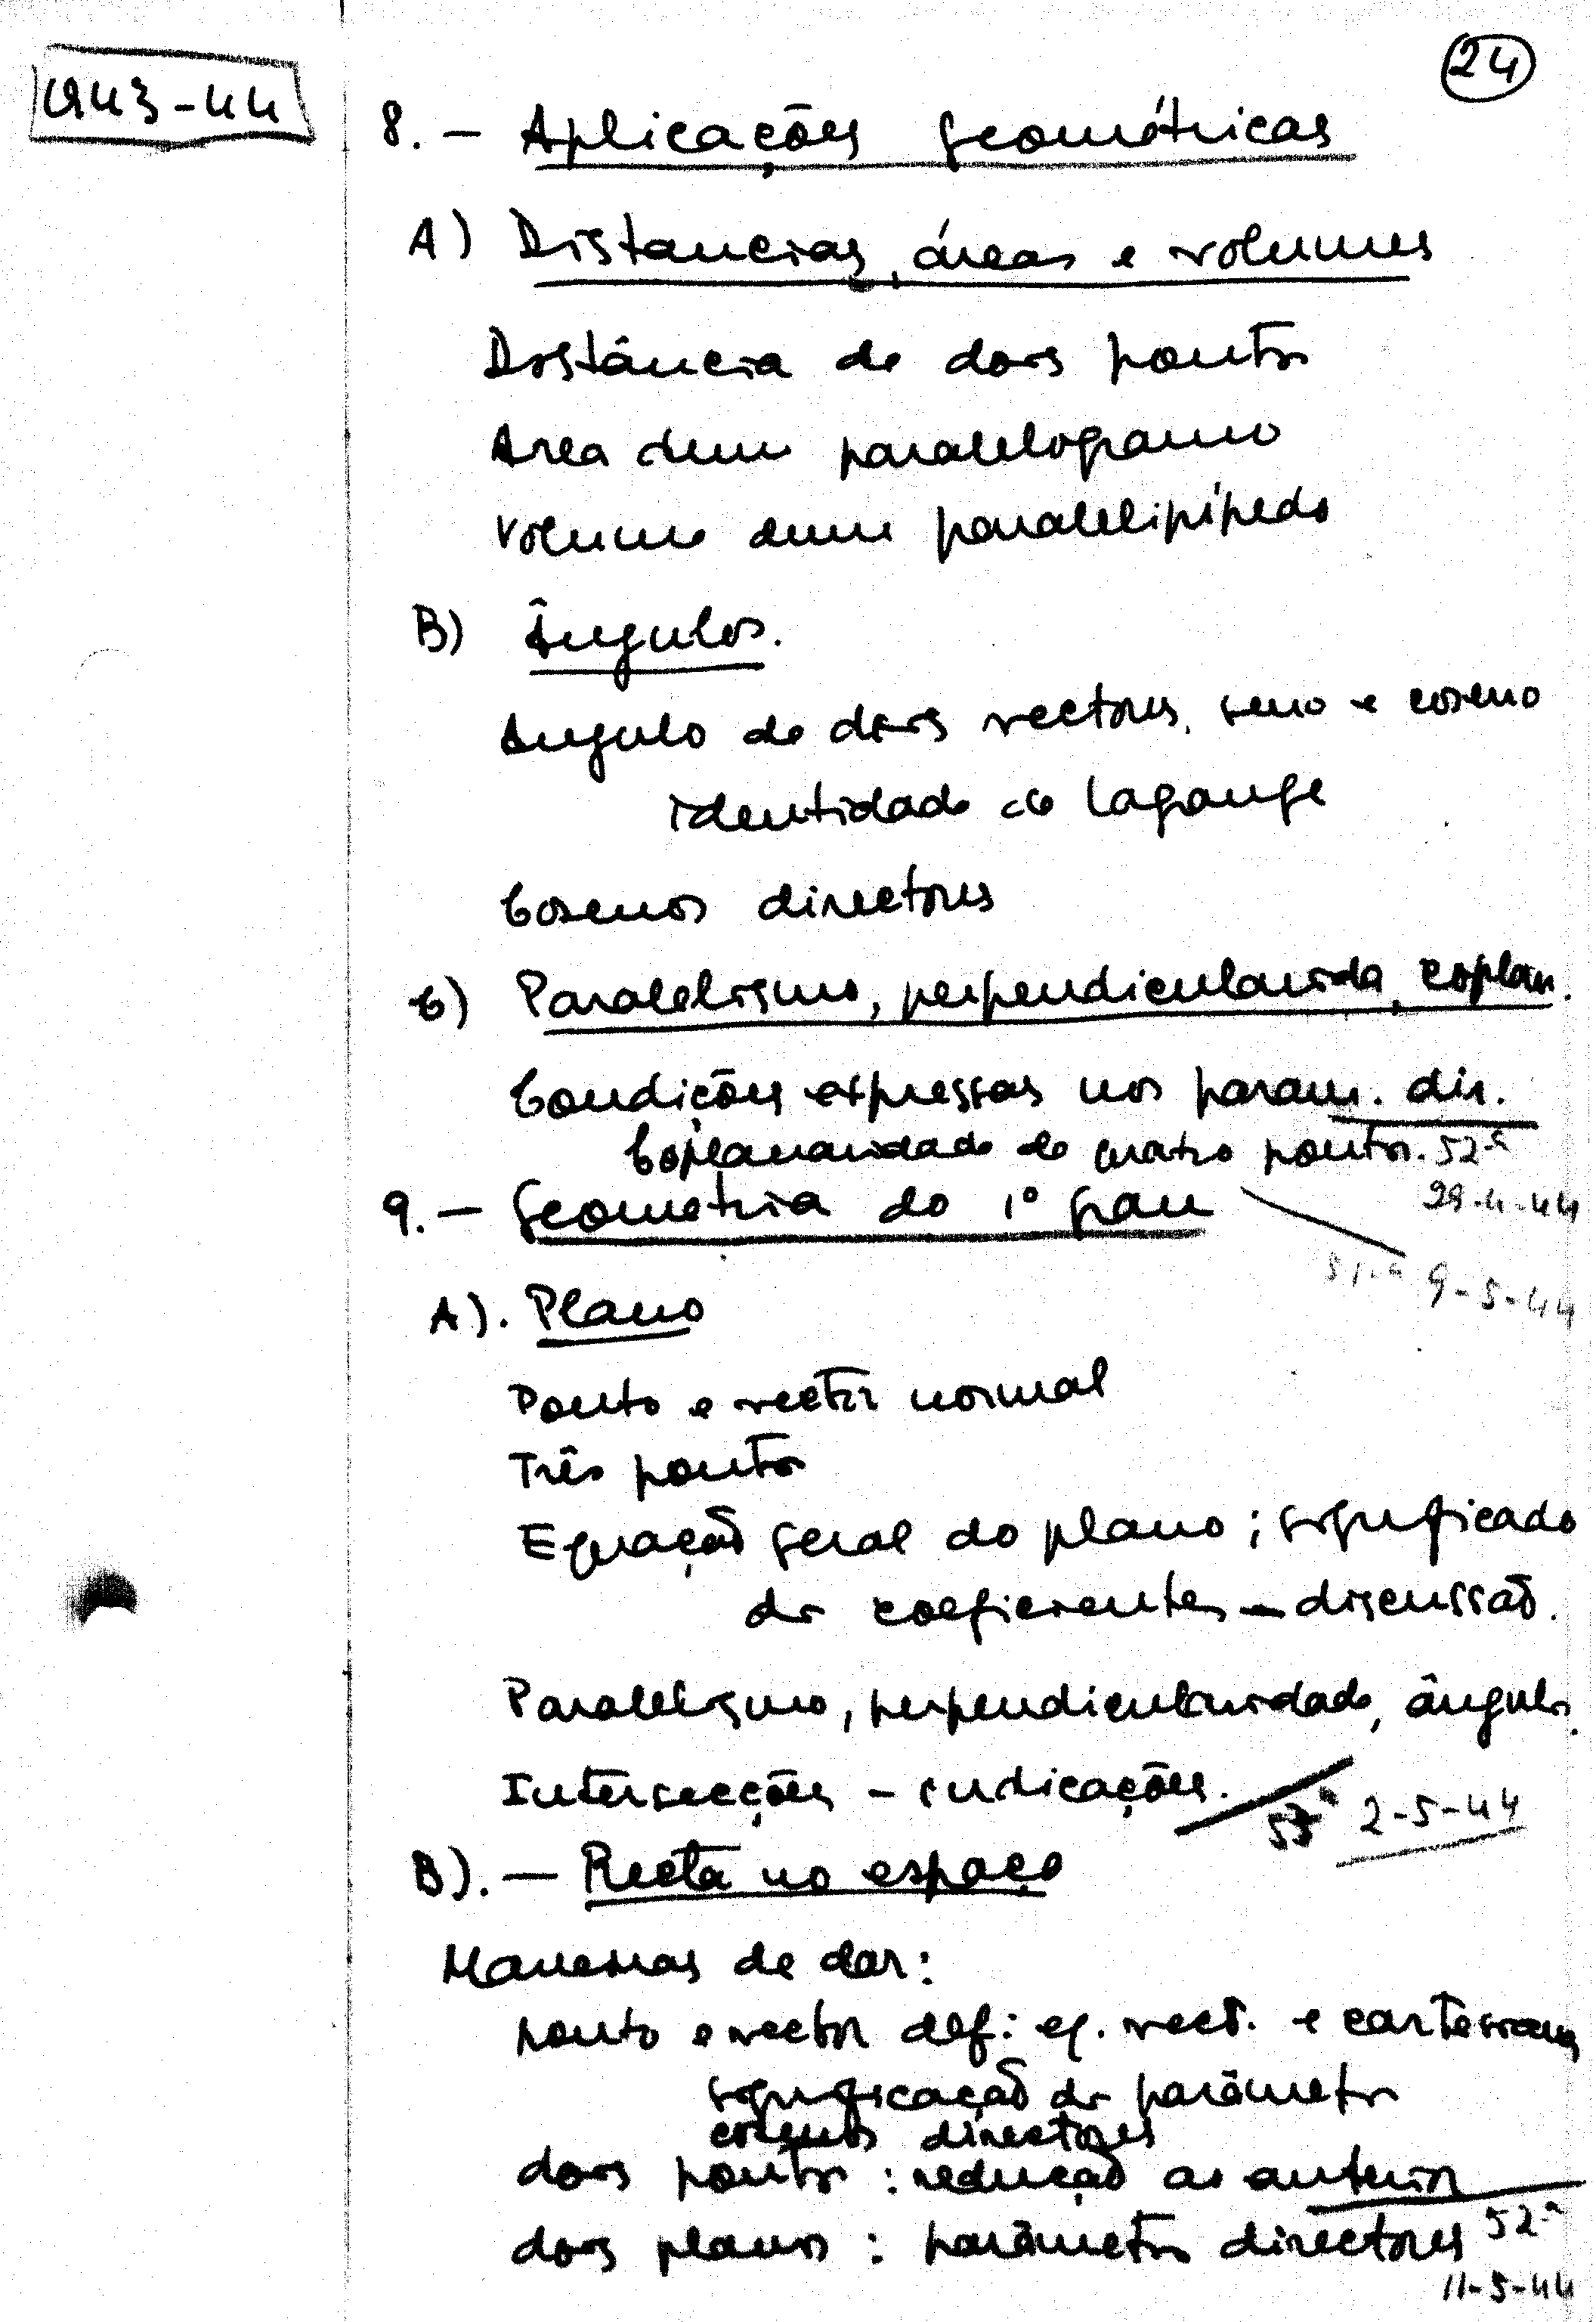 24
1943-44
8. — Aplicações geométricas
A) Distancias, áreas e volumes
Distância de dois pontos
Area dum paralelogramo
Volume dum paralelipípedo
B) Ângulos.
Angulo de dois vectores, seno e coseno
identidade de Lagrange
Cosenos directores
C) Paralelismo, perpendicularida, coplan.
Condições expressas nos param. dir.
Coplanaridade de quatro pontos. 52ª
29-4-44
9. — Geometria do 1º grau
51.ª 9-5-44
A). Plano
Ponto e vector normal
Três pontos
Equação geral do plano; significado
dos coeficientes — discussão.
Paralelismo, perpendicularidade, ângulos.
Intersecções — indicações.
53ª 2-5-44
B). — Recta no espaço
Maneiras de dar:
ponto e vector def: eq. vect. e cartesianas
significação dos parâmetros
cosenos directores
dois pontos : redução ao anterior
52.ª
dois planos : parâmetros directores
11-5-44